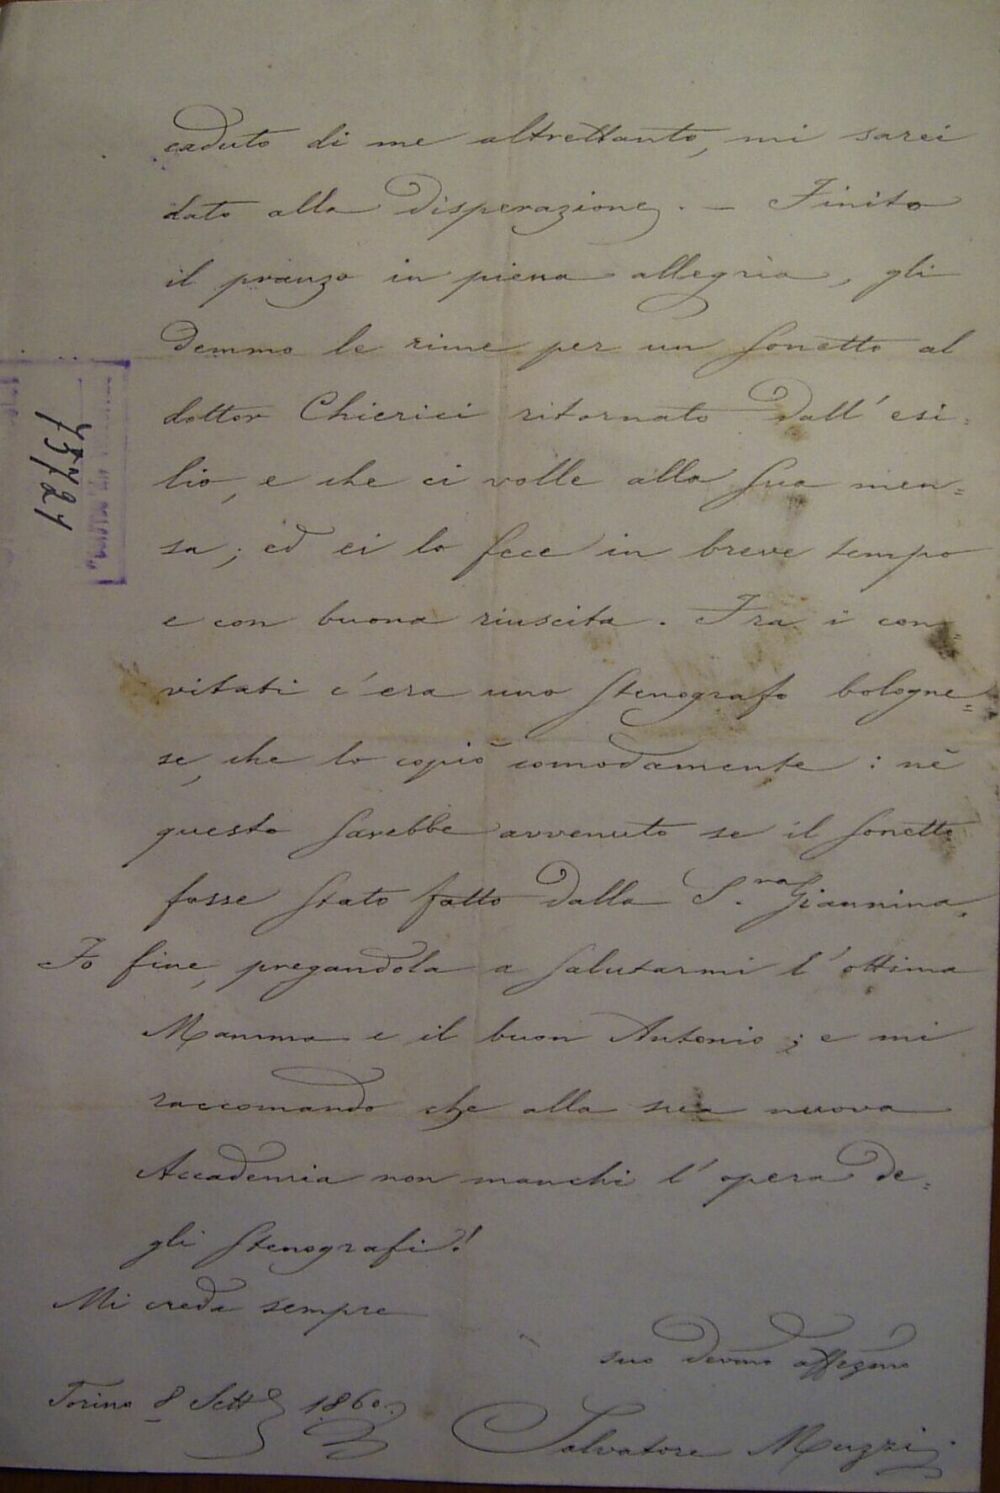 caduto di me altrettanto, mi sarei
dato alla disperazione. — Finito
il pranzo in piena allegria, gli
demmo le rime per un sonetto al
dottor Chierici ritornato dall'esi=
lio, e che ci volle alla sua men=
sa; ed ei lo fece in breve tempo
e con buona riuscita. Fra i con=
vitati c'era uno stenografo bologne=
se, che lo copiò comodamente: nè
questo sarebbe avvenuto se il sonetto
fosse stato fatto dalla S.ra Giannina.
Io fine, pregandola a salutarmi l'ottima
Mamma e il buon Antonio; e mi
raccomando che alla sua nuova
Accademia non manchi l'opera de=
gli stenografi!
Mi creda sempre
suo devmo affezmo
Torino 8 Sett 1860.
Salvatore Muzzi
75721